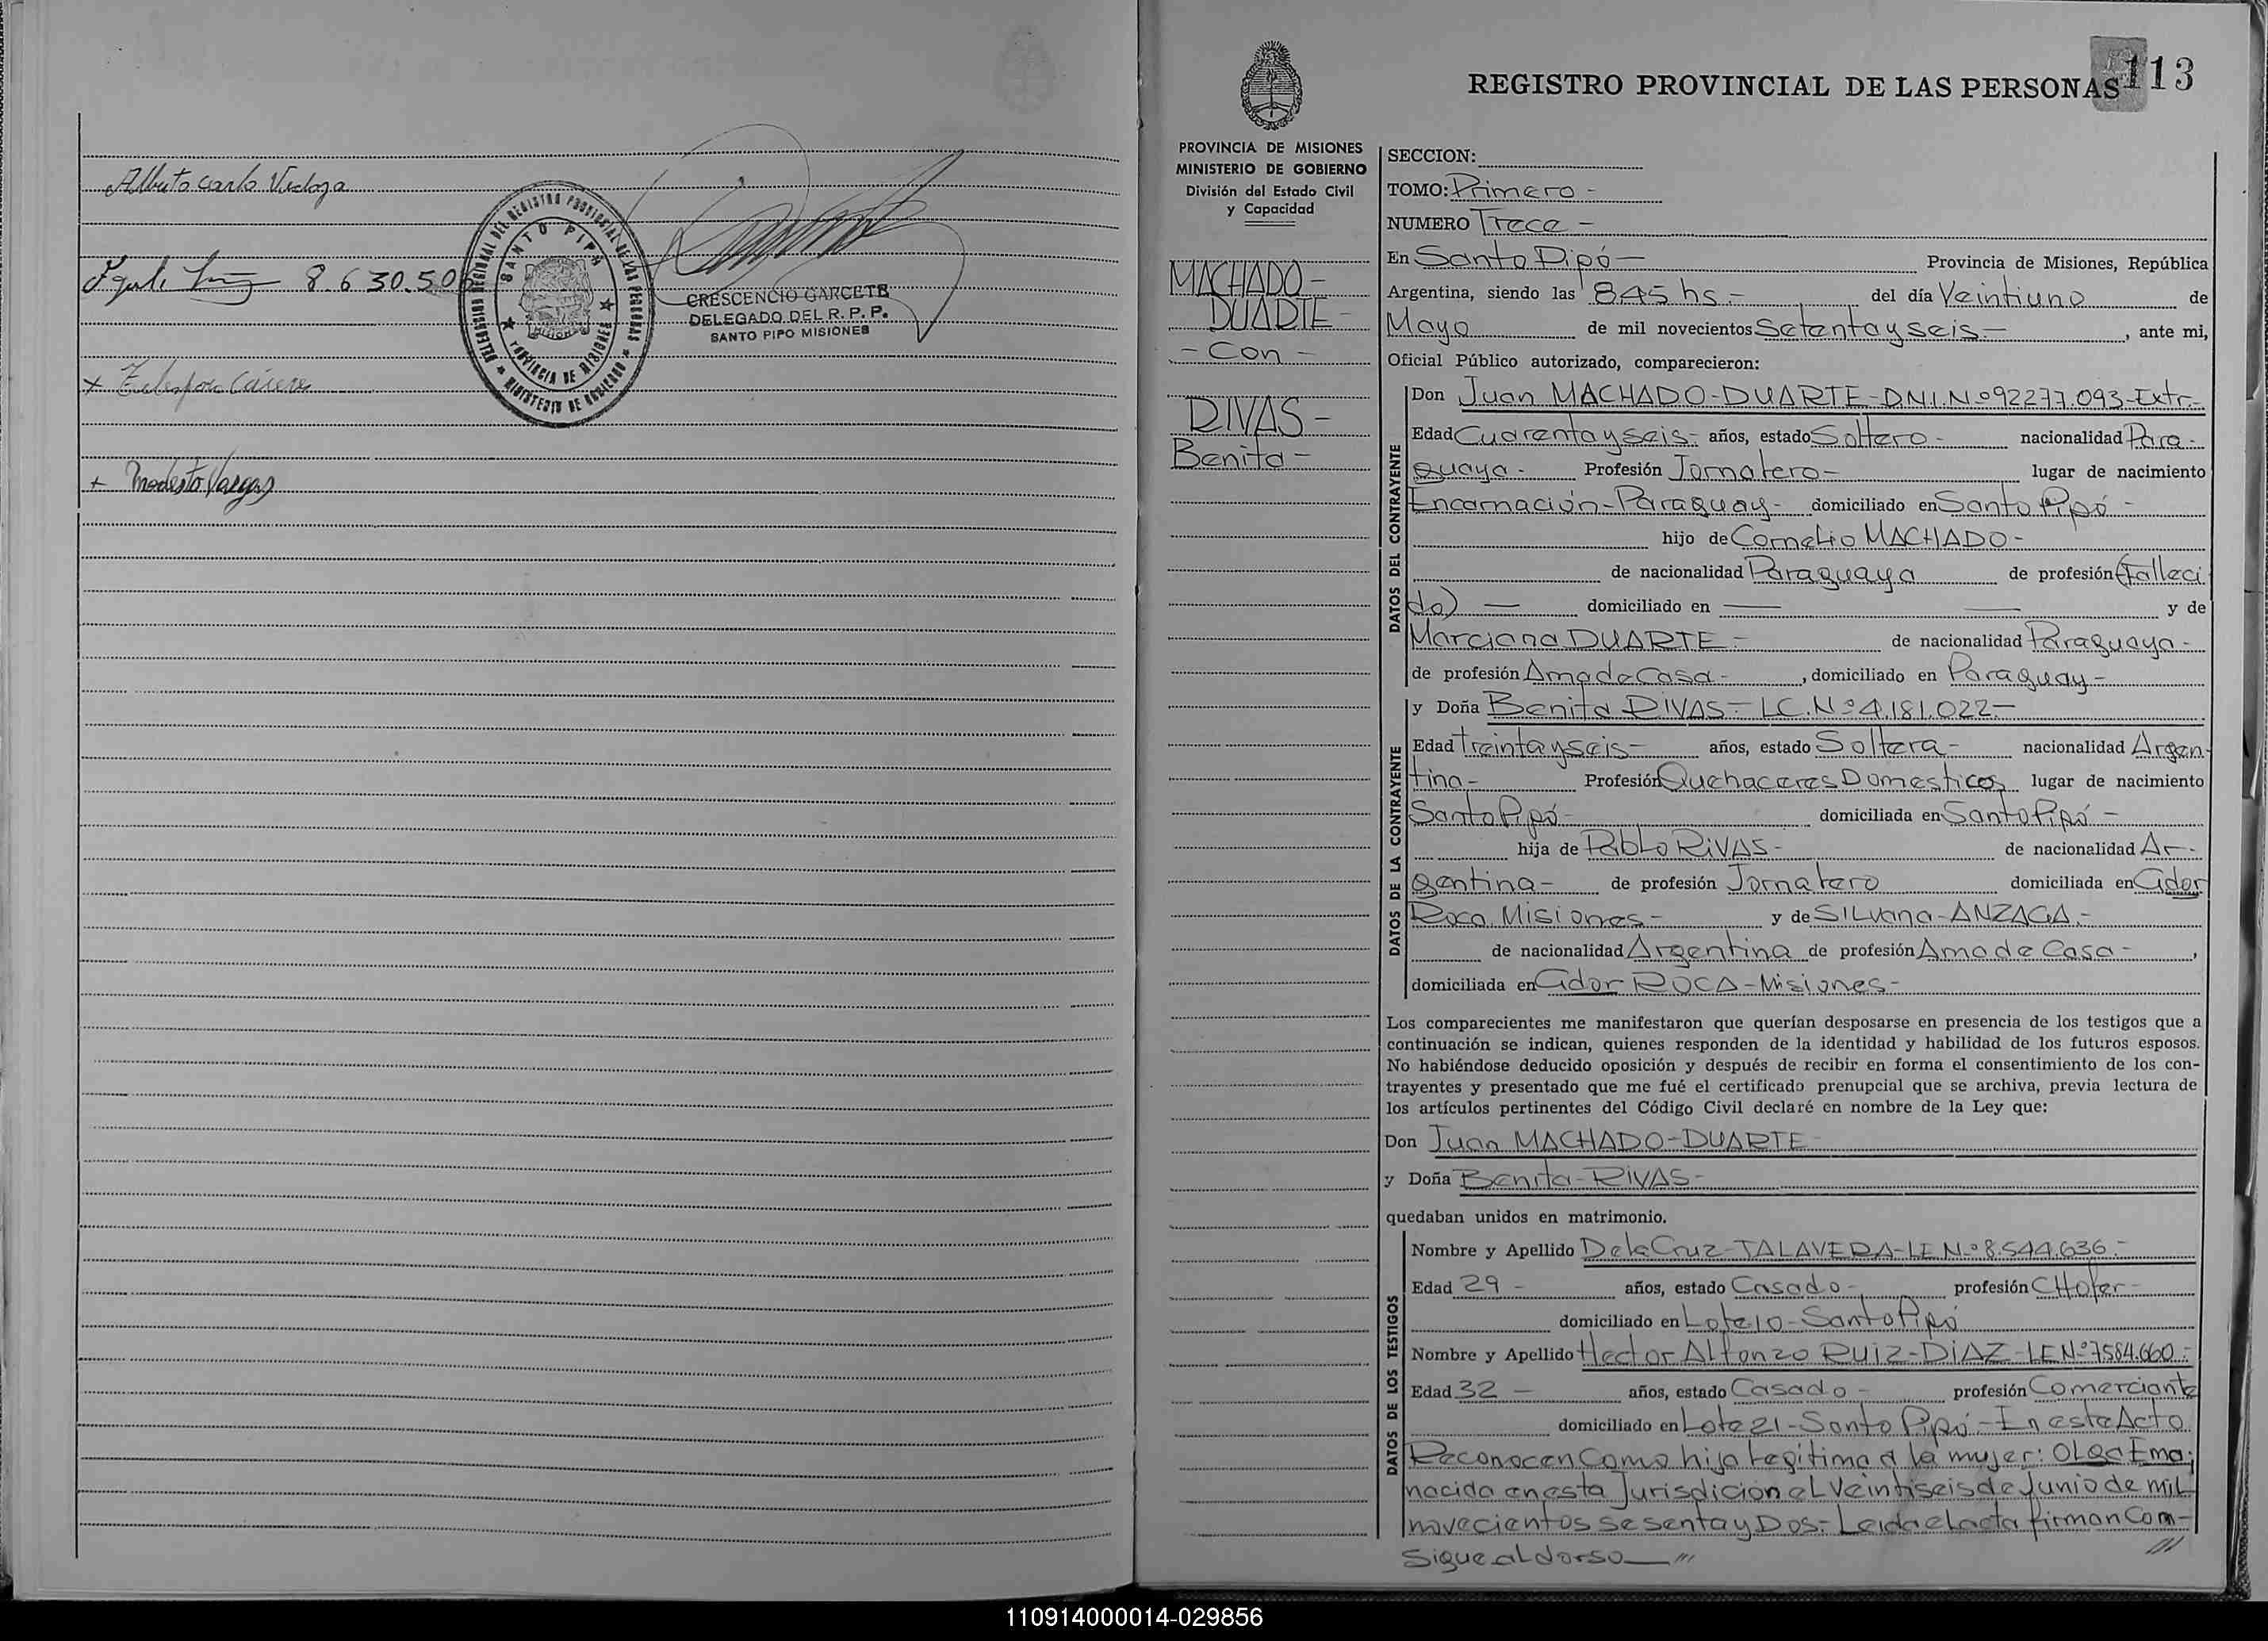 Alberto Carlo Vedoza
8.630.50
CRESCENCIO GARCETE
DELEGADO DEL R. P. P.
SANTO PIPO MISIONES
SANTO PIPO
MISIONES
PROVINCIA DE MISIONES
MINISTERIO DE GOBIERNO
+ Cáceres
+ Modesto Vargas
REGISTRO PROVINCIAL DE LAS PERSONAS
113
PROVINCIA DE MISIONES
MINISTERIO DE GOBIERNO
División del Estado Civil
y Capacidad
MACHADO-
DUARTE-
- Con -
RIVAS-
Benita-
SECCION:
TOMO: Primero -
NUMERO Trece -
En Santo Pipó- Provincia de Misiones, República
Argentina, siendo las 845 hs.- del día Veintiuno de
Mayo de mil novecientos Setenta y seis.- , ante mi,
Oficial Público autorizado, comparecieron:
DATOS DEL CONTRAYENTE
Don Juan MACHADO-DUARTE-DNI.Nº92277.093-Extr.-
Edad Cuarenta y seis- años, estado Soltero- nacionalidad Para-
guaya- Profesión Jornalero- lugar de nacimiento
Encarnación-Paraguay- domiciliado en Santo Pipó-
hijo de Cornelio MACHADO-
de nacionalidad Paraguaya de profesión (Falleci
do) — domiciliado en — — y de
Marciana DUARTE- de nacionalidad Paraguaya-
de profesión Ama de Casa- , domiciliado en Paraguay-
DATOS DE LA CONTRAYENTE
y Doña Benita RIVAS- LC.Nº4.181.022-
Edad treinta y seis- años, estado Soltera- nacionalidad Argen-
tina- Profesión Quehaceres Domesticos lugar de nacimiento
Santo Pipó- domiciliada en Santo Pipó-
hija de Pablo RIVAS- de nacionalidad Ar-
gentina- de profesión Jornalero domiciliada en Gdor
Roca. Misiones- y de SILvana-ANZAGA.-
de nacionalidad Argentina de profesión Ama de Casa- ,
domiciliada en Gdor ROCA-Misiones-
Los comparecientes me manifestaron que querían desposarse en presencia de los testigos que a
continuación se indican, quienes responden de la identidad y habilidad de los futuros esposos.
No habiéndose deducido oposición y después de recibir en forma el consentimiento de los con-
trayentes y presentado que me fué el certificado prenupcial que se archiva, previa lectura de
los artículos pertinentes del Código Civil declaré en nombre de la Ley que:
Don Juan MACHADO-DUARTE-
y Doña Benita-RIVAS-
quedaban unidos en matrimonio.
DATOS DE LOS TESTIGOS
Nombre y Apellido De la Cruz-TALAVERA-LE Nº8.544.636-
Edad 29- años, estado Casado- profesión CHofer-
domiciliado en Lote 10-Santo Pipó
Nombre y Apellido Hector Alfonzo RUIZ-DIAZ-LE Nº7584.660-
Edad 32- años, estado Casado- profesión Comerciante
domiciliado en Lote 21-Santo Pipó-En este Acto
Reconocen Como hija Legitima a la mujer: OLga Ema;
nacida en esta Jurisdicion eL Veintiseis de Junio de miL
novecientos sesenta y Dos.- Leida el acta firman Com-
Sigue aL dorso — ///
110914000014-029856